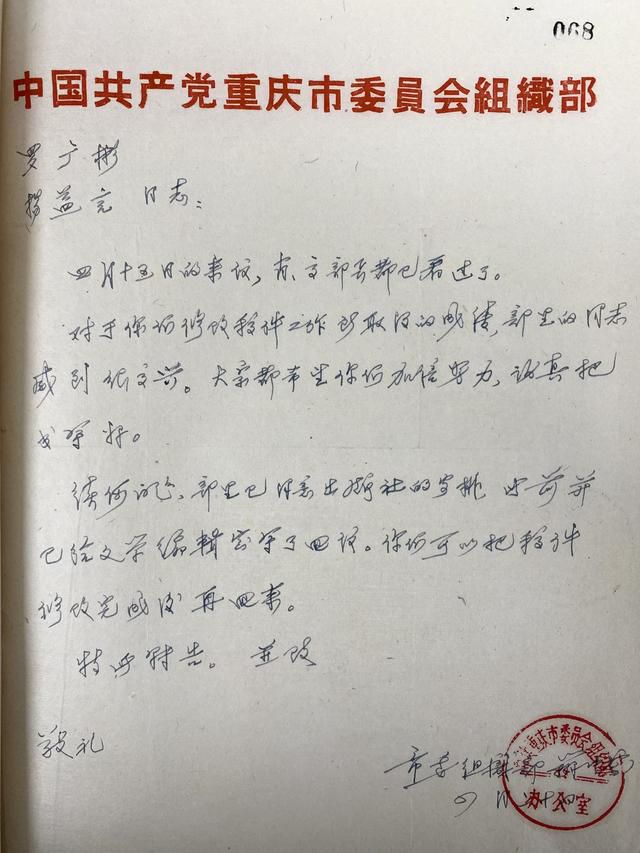 068
中国共产党重庆市委員会組織部
罗广彬
杨益言 同志:
四月十五日的来信,肖、文部长都已看过了。
对于你们修改稿件工作所取得的成绩,部里的同志
感到很高兴。大家都希望你们加倍努力,认真把
书写好。
续假问题,部里已同意出版社的安排,
已给文学编辑室写了回信。你们可以把稿件
修改完成后再回来。
特此转告。 並致
敬礼
市委组織部
重庆市委員会組織部
办公室